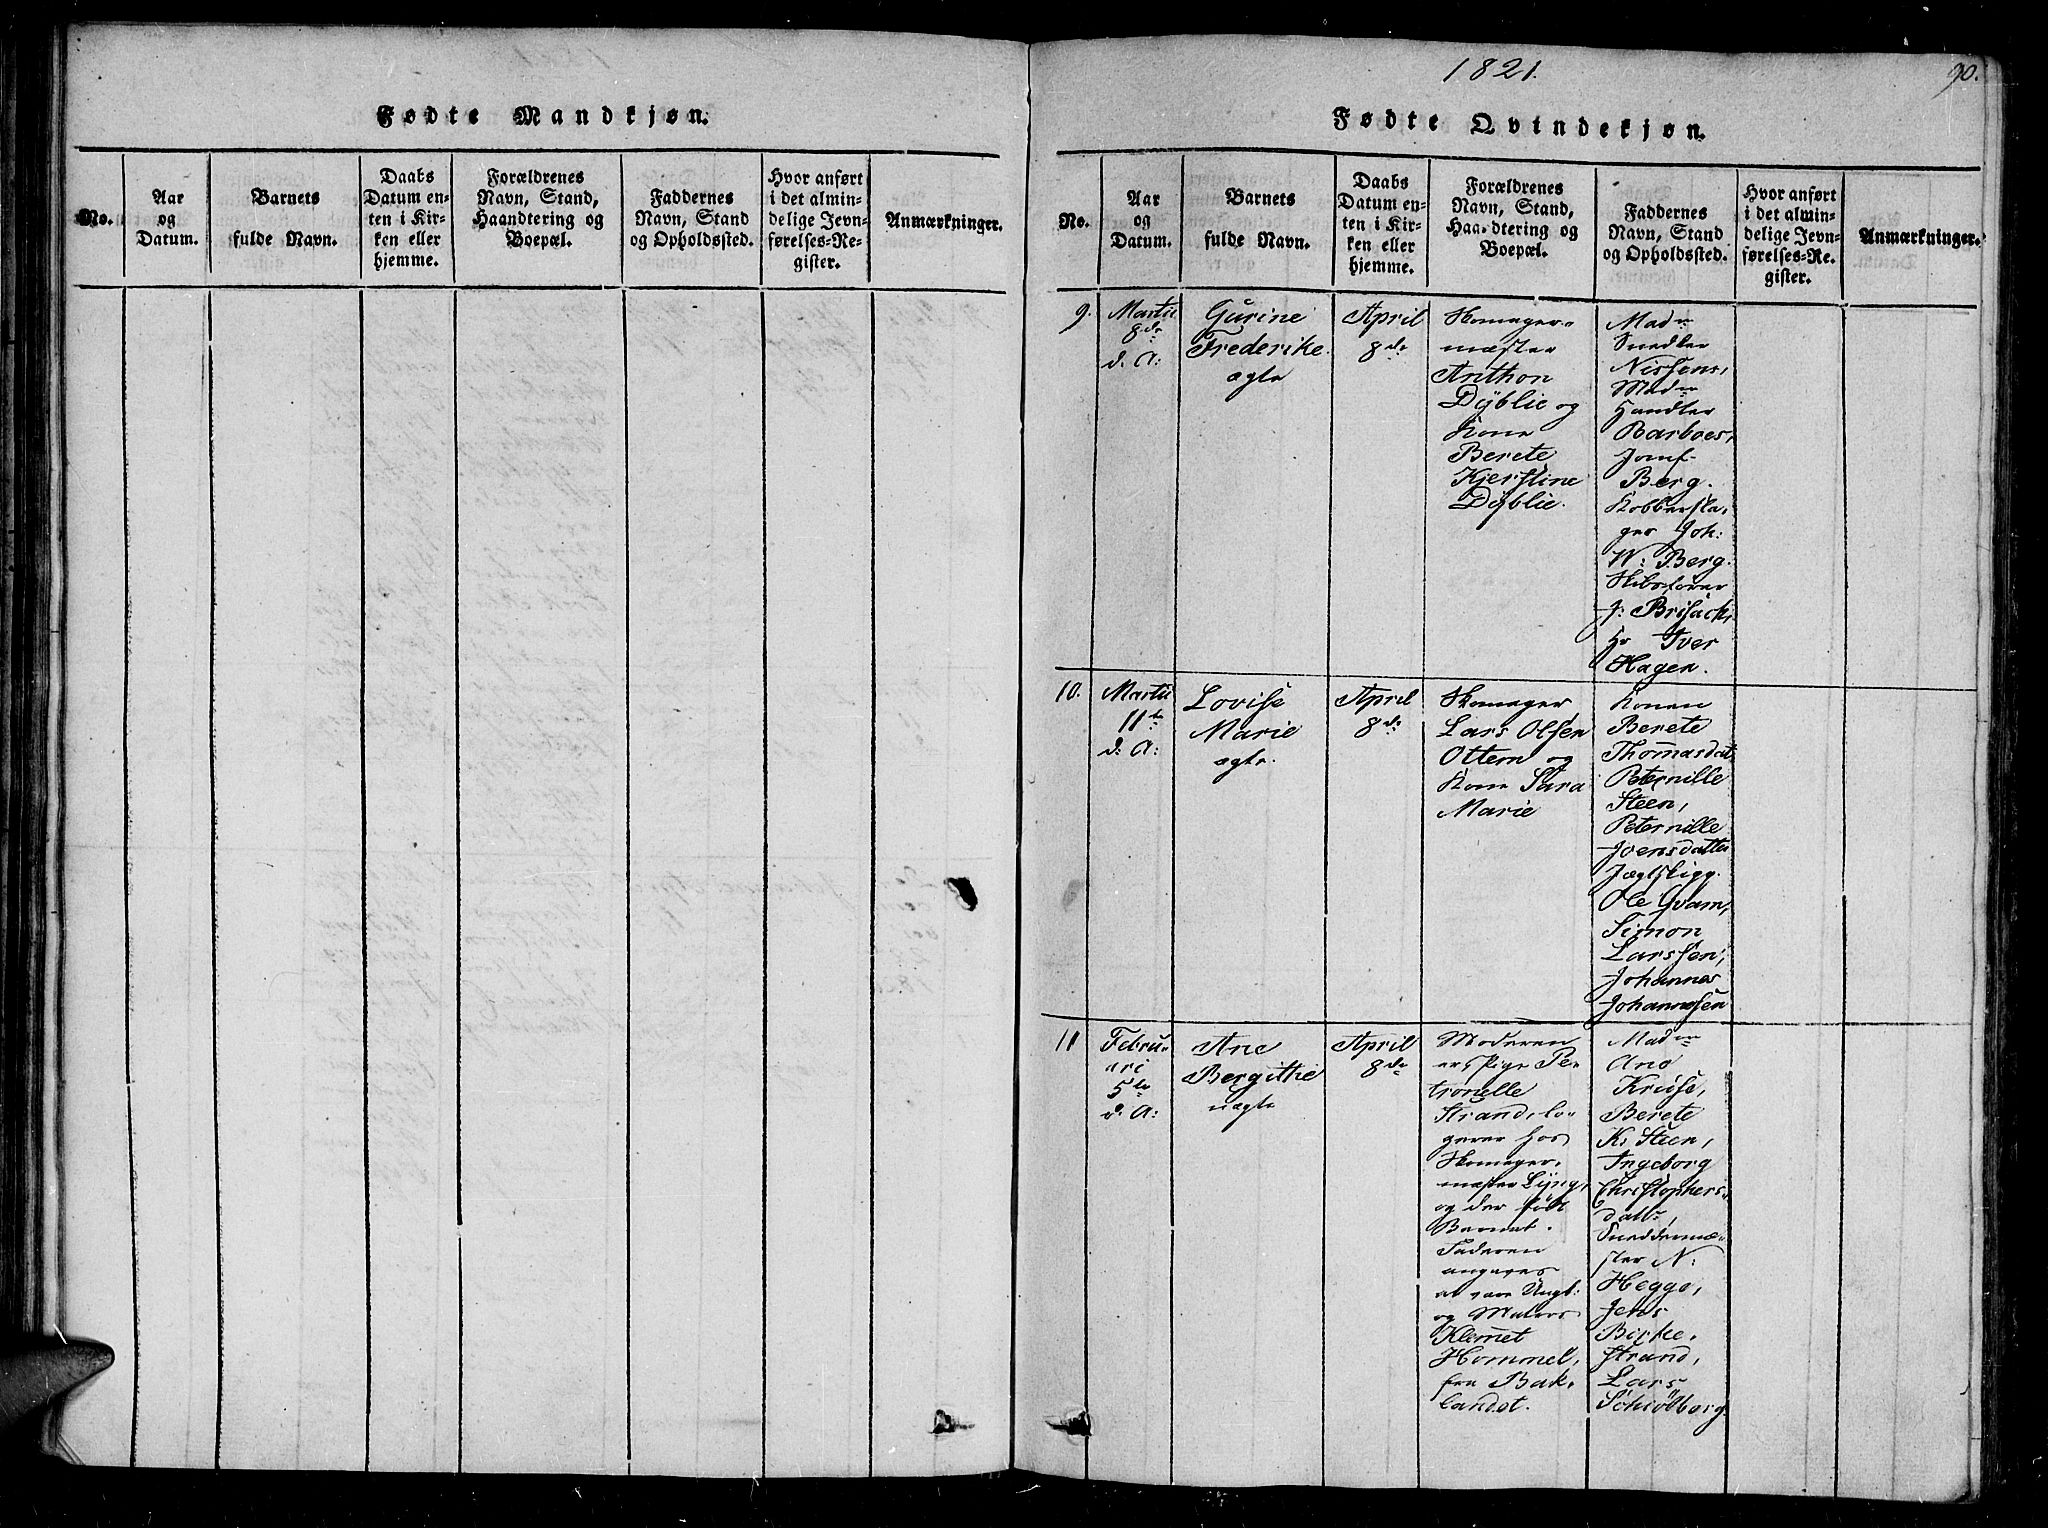 Fødte Mandkjøn.
No.
Aar
og
Datum.
Barnets
fulde Navn.
Daabs
Datum en-
ten i Kir-
ken eller
hjemme.
Forældrenes
Navn, Stand,
Haandtering og
Boepæl.
Faddernes
Navn, Stand
og Opholdssted.
Hvor anført
i det almin-
delige Jevn-
førelses-Re-
gister.
Anmærkninger.
1821.
90.
Fødte Qvindekjøn.
No.
Aar
og
Datum.
Barnets
fulde Navn.
Daabs
Datum en-
ten i Kir-
ken eller
hjemme.
Forældrenes
Navn, Stand,
Haandtering og
Boepæl.
Faddernes
Navn, Stand
og Opholdssted.
Hvor anført
i det almin-
delige Jevn-
førelses-Re-
gister.
Anmærkninger.
9.
Martii
8de
d. A:
Gurine
Frederike
ægte
April
8de
Skomager-
mæster
Anthon
Dÿblie og
Kone
Berete
Kjerstine
Dÿblie.
Madm
Snedker
Nissens,
Madm
Handler
Barboes,
Jomf
Berg.
Kobbersla-
ger Joh:
W: Berg.
Skibsfører
J: Brisach,
Hr Iver
Hagen.
10.
Martii
11te
d. A:
Lovise
Marie
ægte.
April
8de
Skomager
Lars Olsen
Ottem og
Kone Sara
Marie
Konen
Berete
Thomasdat
Peternille
Steen,
Peternille
Joensdatter
Jægtskipp.
Ole Qvam,
Simon
Larssen,
Johannes
Johannesen
11
Febru-
ari
5te
d. A:
Ane
Bergithe
uægte
April
8de
Moderen
er Pige Pe-
tronelle
Strand, lo-
gerer hos
Skomager-
mæster Lÿng,
og der født
Barnet.
Faderen
angives
at være Ungk:
og Matros
Klemet
Hommel,
fra Bak-
landet.
Madm
Ane
Kruse,
Berete
K: Steen,
Ingeborg
Christophers-
datt,
Sneddermæ-
ster N:
Hegge,
Jens
Birke-
strand,
Lars
Schiölberg.